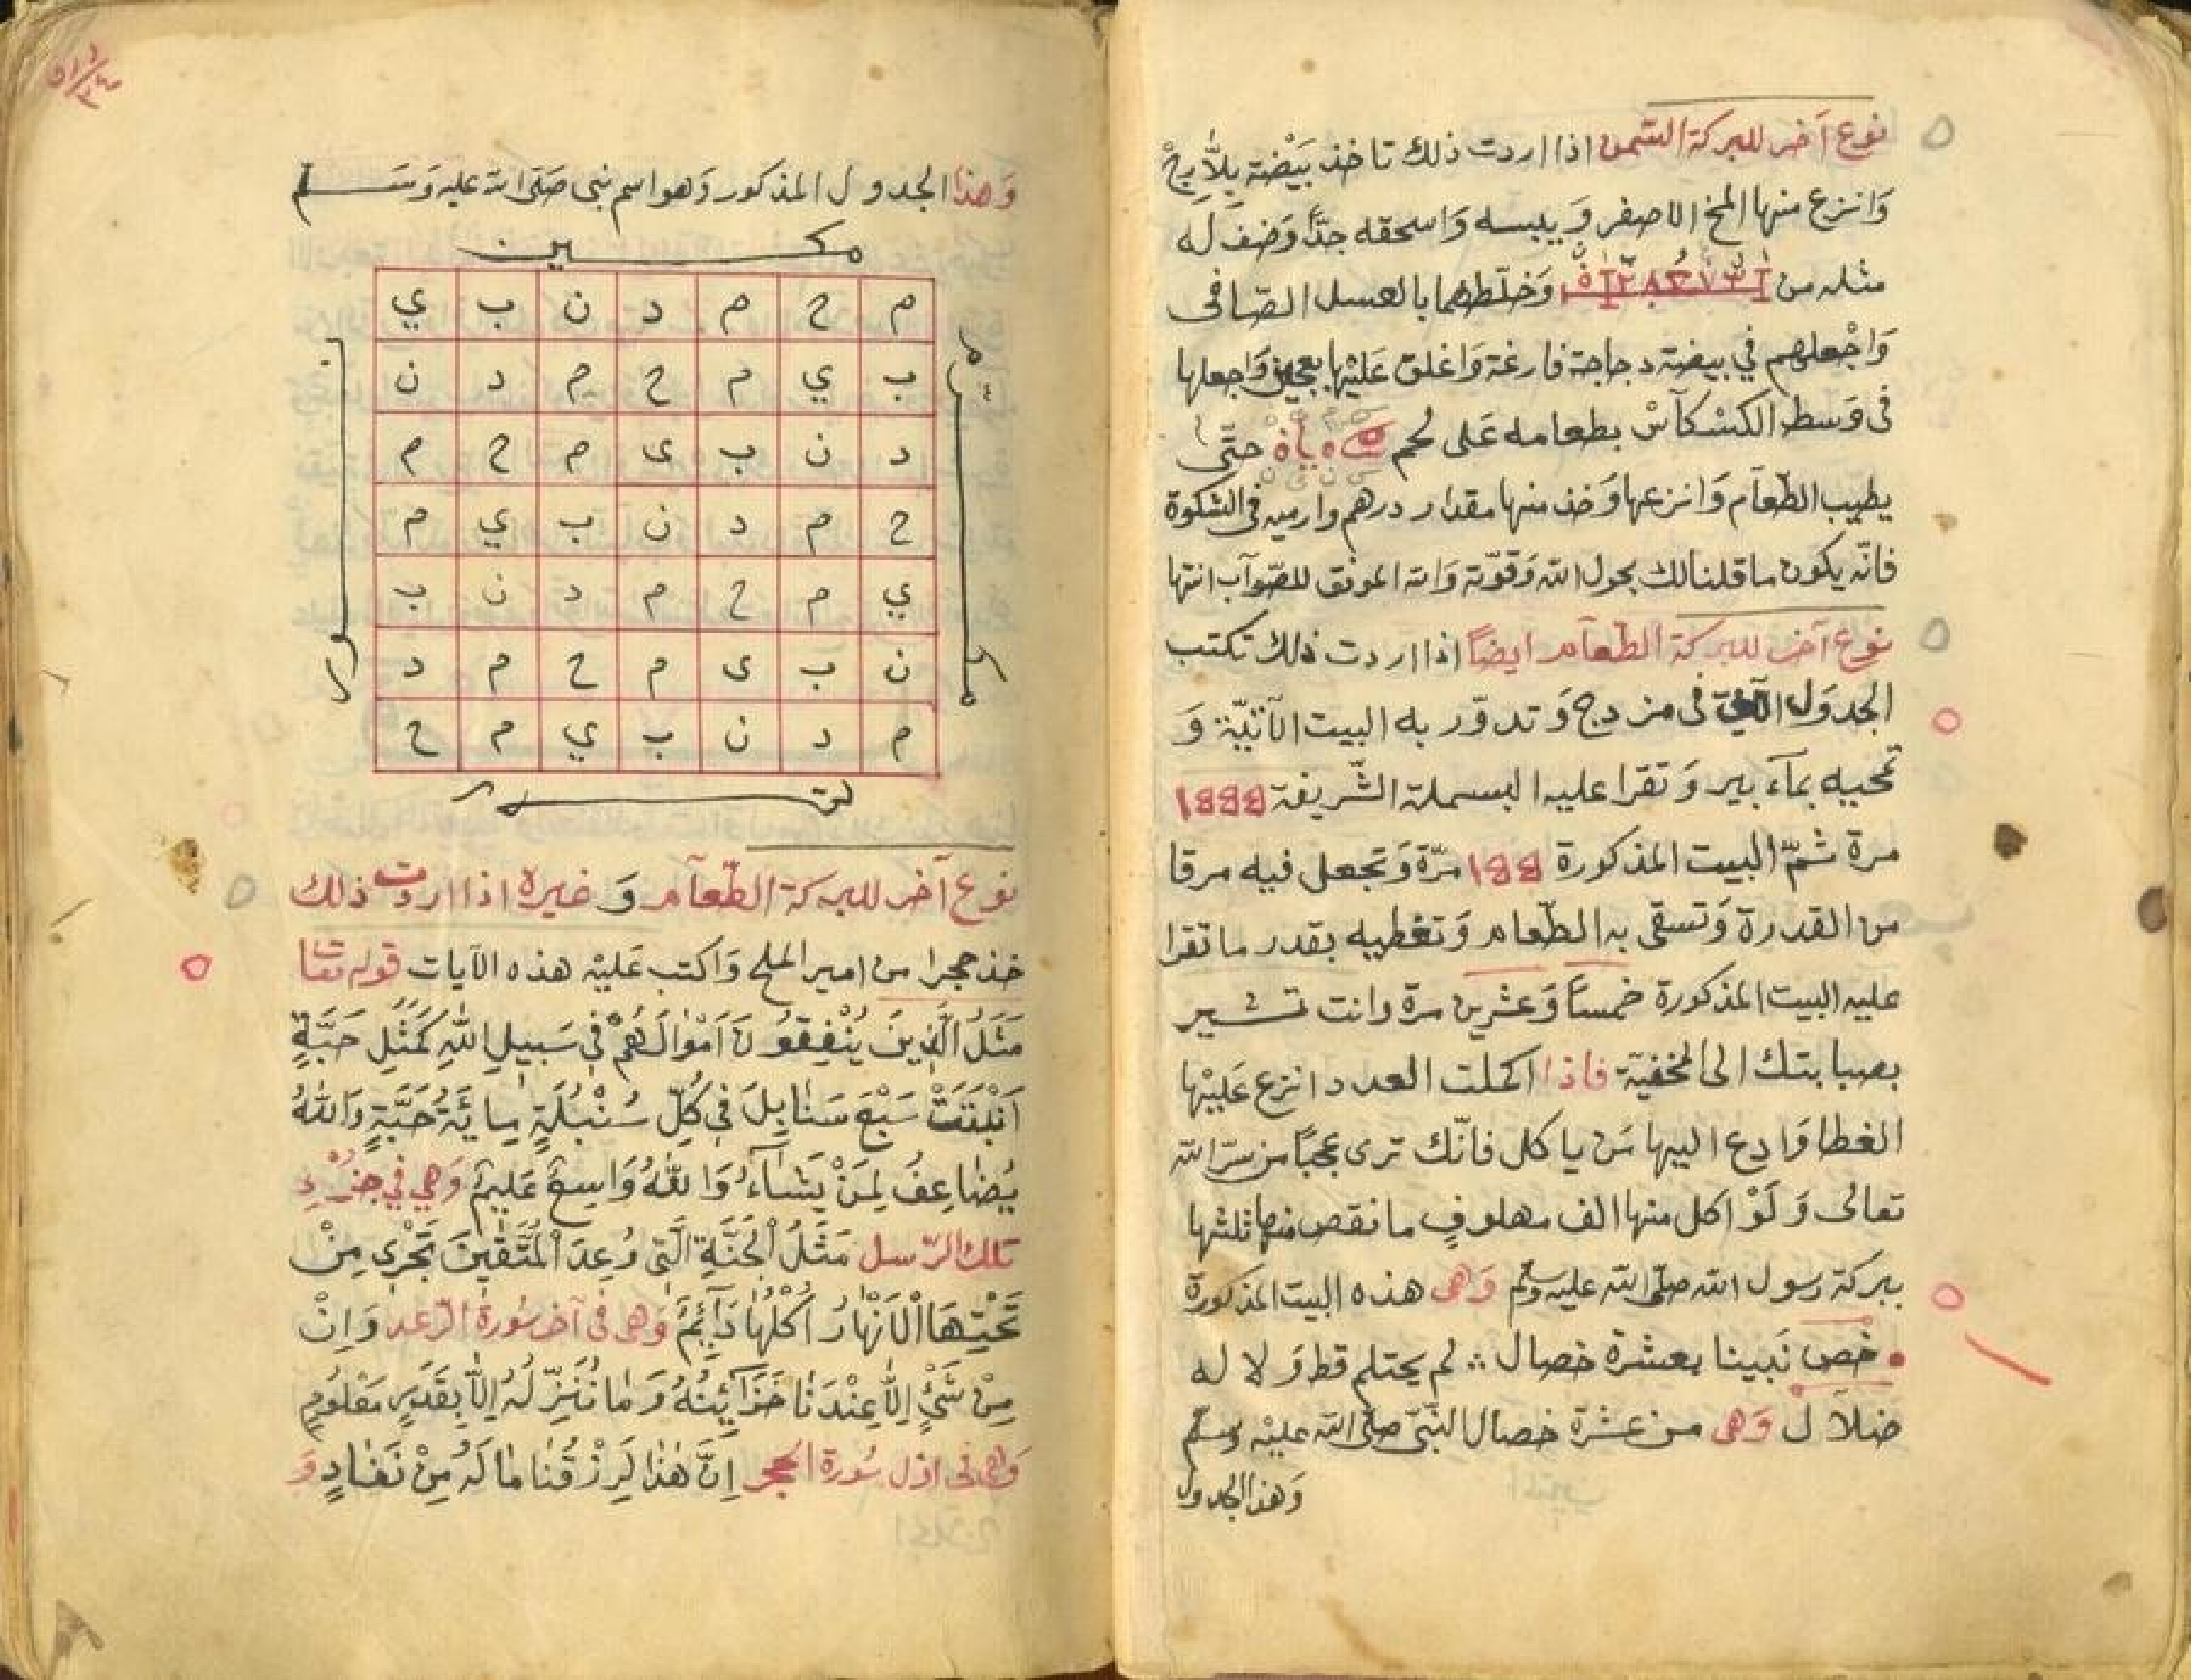 نوع آخر للبركة السّمن اذا اردت ذلك تاخذ بَيْضة بلّارج
وَانزع منها المخ الاصفر وَيبسه وَاسحقه جدًّا وَضف له
مثله من وَخلّطهما بالعسل الصّافى
وَاجْعلهم في بيضة دجاجة فارغة وَاغلق عَليْها بعجين وَاجعلها
فى وَسط الكسْكآسْ بطعامه عَلى لحم حتّى
يطيب الطّعآم وَانزعها وَخذ منها مقدار درهم وارميه فى الشكوة
فانّه يكون ما قلنا لك بحول الله وَقوّته وَالله الموفق للصّوآب انتها
نوع آخر للبركة الطّعآم ايضاً اذا اردت ذلك تكتب
الجدوَل فى مزدج وَتدوّر به البيت الآتيّة وَ
تمحيه بمآء بير وَتقرا عليه البسملة الشّريفة
مرة ثمّ البيت المذكورة مرّة وَتجعل فيه مرقا
من القدرة وَتسقى به الطّعام وَتغطيه بقدر ما تقرا
عليه البيت المذكورة خمساً وَعشرين مرة وانت تشير
بصبابتك الى المخفية فاذا اكملت العدد انزع عَليْها
الغطا وَادع اليها مَن ياكل فانّك ترى عجبًا من سرّ الله
تعالى وَلَوْ اكل منها الف مهلوفٍ ما نقص منها ثلثها
ببركة رسول الله صلّى الله عليه وسلم وَهى هذه البيت المذكورة
خص نَبينا بعشرة خصال ∴ لم يحتلم قط وَلا له
ضلآل وَهى من عشرة خصال النّبىّ صلى الله عليْه وسلم
وَهذا الجدول
وَهذا الجدول المذكور وَهو اسم نبى صَلى الله عليه وَسَلم
مكين
م ح م د ن ب ي
ب ي م ح م د ن
د ن ب ى م ح م
ح م د ن ب ي م
ي م ح م د ن ب
ن ب ى م ح م د
م د ن ب ي م ح
نوع آخر للبركة الطّعآم وَغيره اذا اردت ذلك
خذ حجرا من امير الملح وَاكتب عَليْه هذه الآيات قوله تعا
مَثَلُ الَّذِينَ يُنْفِقُونَ اَمْوَالَهُمْ فِى سَبِيلِ اللهِ كَمَثَلِ حَبَّةٍ
اَنْبَتَتْ سَبْعَ سَنَابِلَ فِى كُلِّ سُنْبُلَةٍ مِايَةُ حَبَّةٍ وَاللهُ
يُضَاعِفُ لِمَنْ يَشَآءُ وَاللهُ وَاسِعٌ عَلِيمٌ وَهي في جزْء
تلك الرّسل مَثَلُ الْجَنَّةِ الَّتِى وُعِدَ الْمُتَّقِينَ تَجْرِى مِنْ
تَحْتِهَا الْاَنْهَارُ اُكْلُهَا دَآئِمٌ وَهى فى آخر سُورة الرّعد وَاِنْ
مِنْ شَىْءٍ اِلَّا عِنْدَنَا خَزَآئِنُهُ وَمَا نُنَزِّلُهُ اِلَّا بِقَدَرٍ مَعْلُومٍ
وَهى فى اوّل سُورة الحجر اِنَّ هَذَا لَرِزْقُنَا مَا لَهُ مِنْ نَفَادٍ وَ